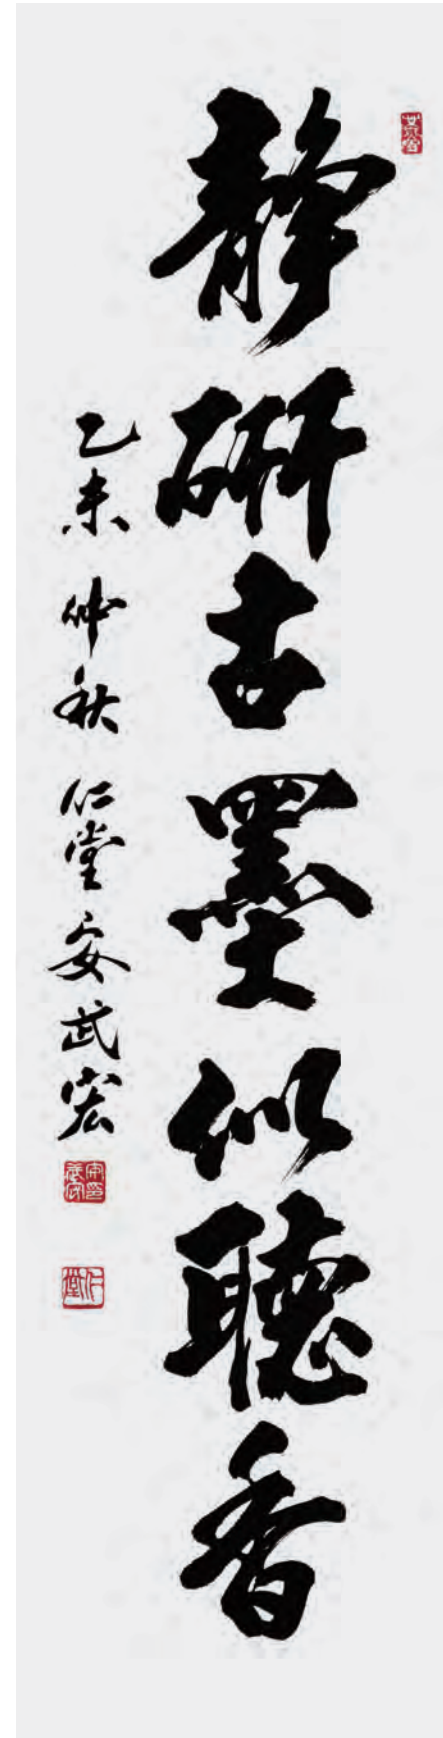 靜研古墨似聽香
乙未 仲秋 仁堂 安武宏